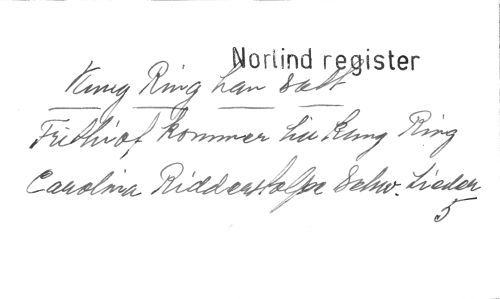 Norlind register
Kung Ring han satt
Frithiof kommer till Kung Ring
Carolina Ridderstolpe Schw. Lieder
5